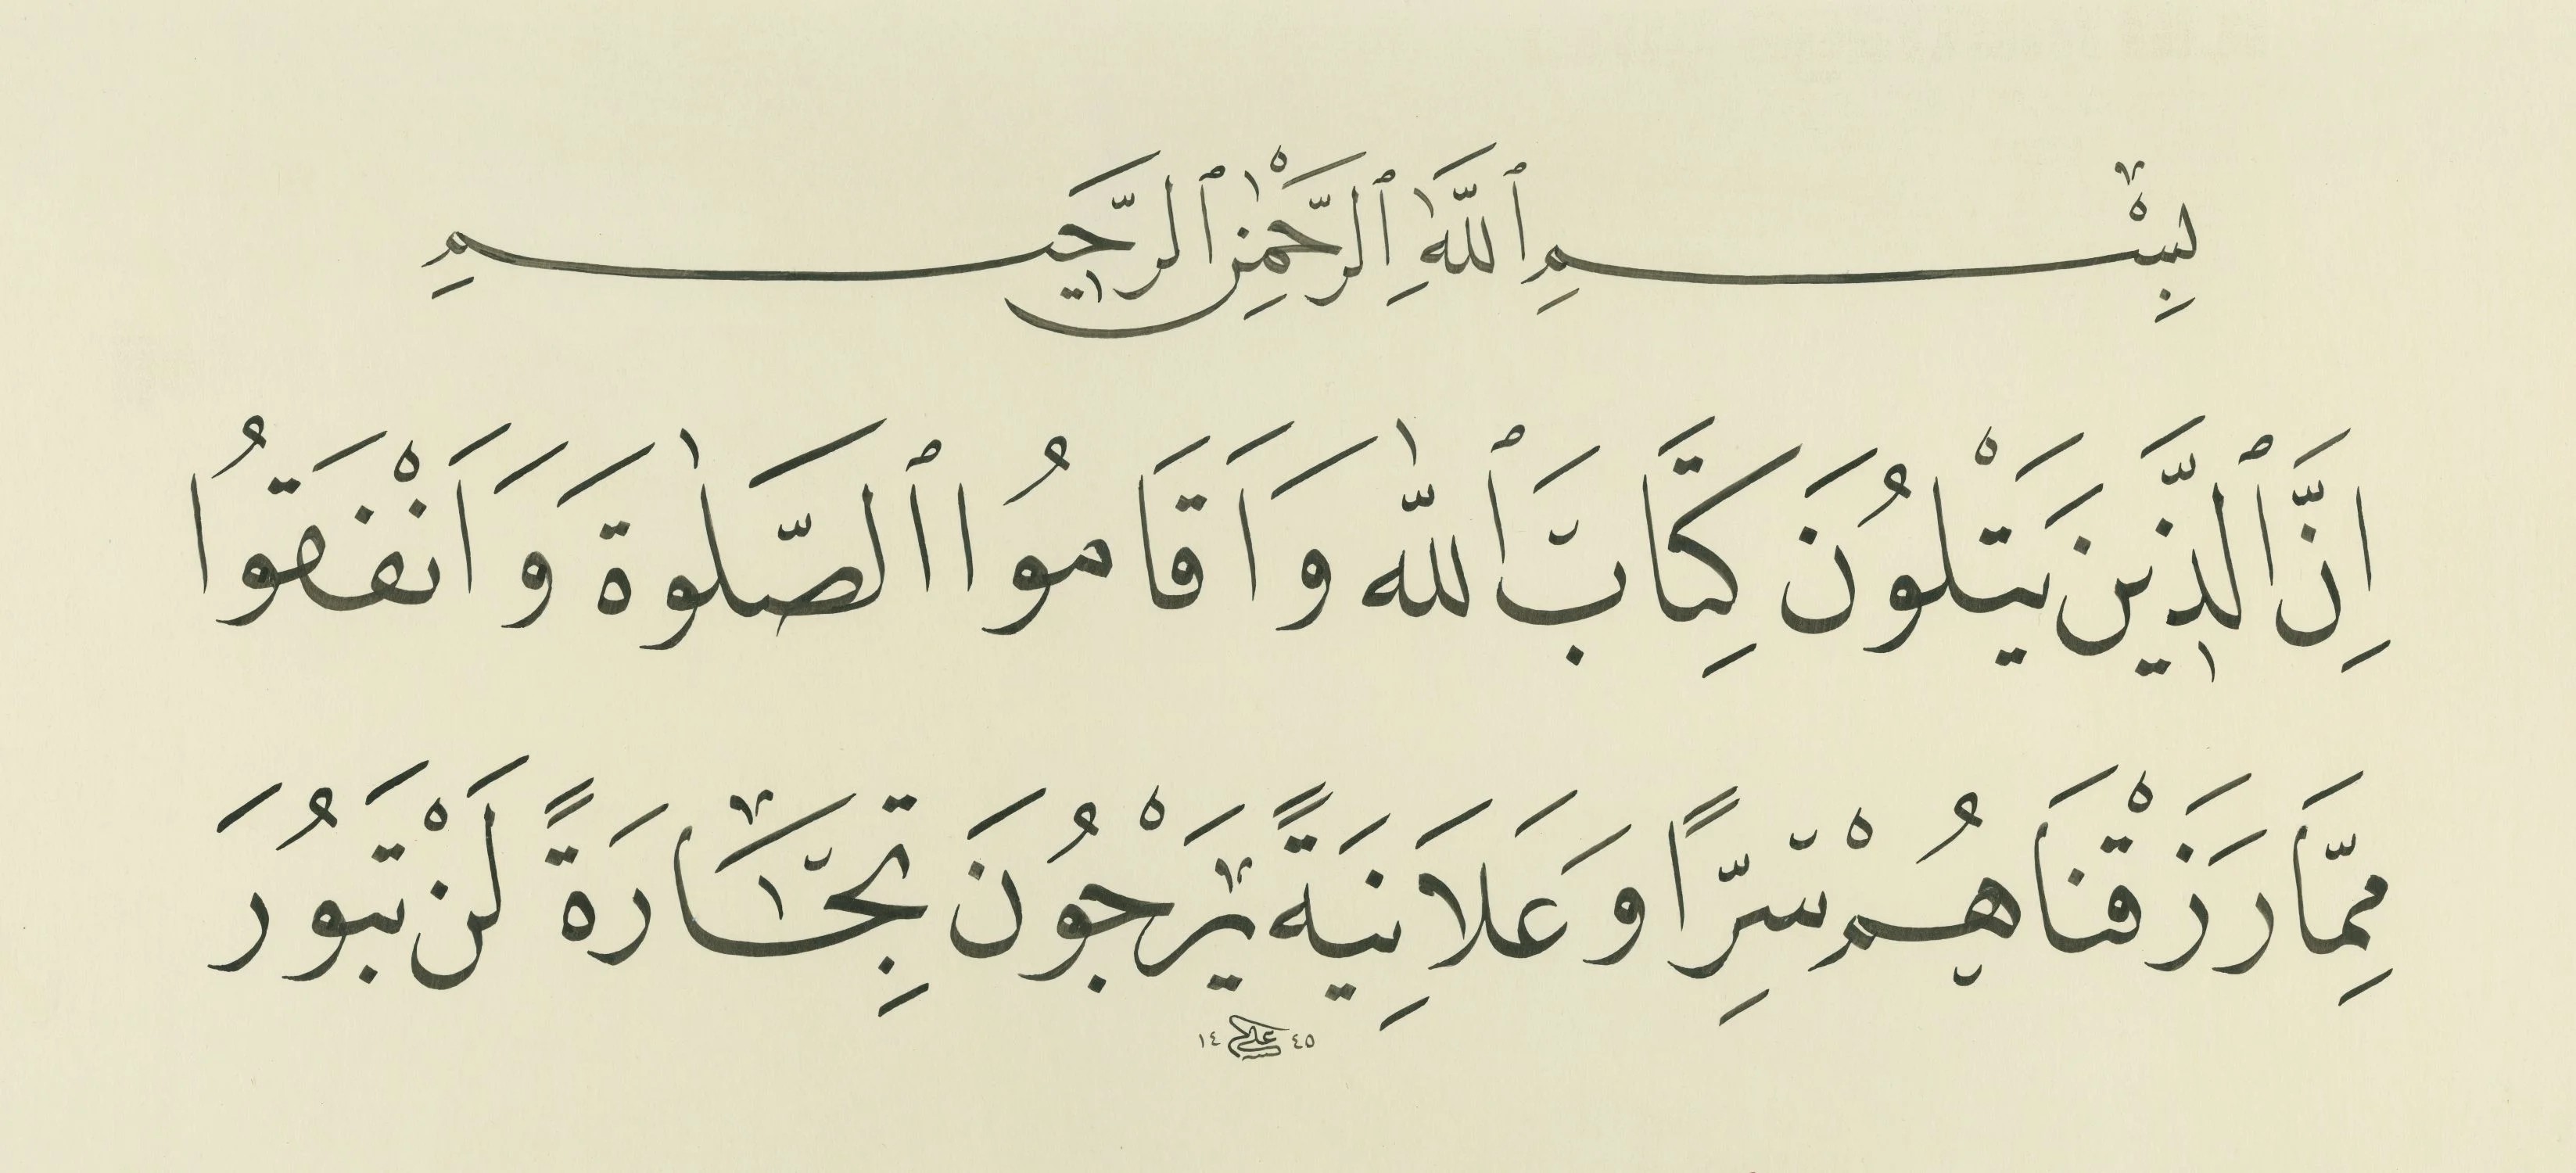 بِسْمِ ٱللّٰهِ ٱلرَّحْمٰنِ ٱلرَّحِيمِ
اِنَّ ٱلَّذِينَ يَتْلُونَ كِتَابَ ٱللّٰهِ وَاَقَامُوا ٱلصَّلٰوةَ وَاَنْفَقُوا
مِمَّا رَزَقْنَاهُمْ سِرًّا وَعَلَانِيَةً يَرْجُونَ تِجَارَةً لَنْ تَبُورَ
١٤ علي ٤٥